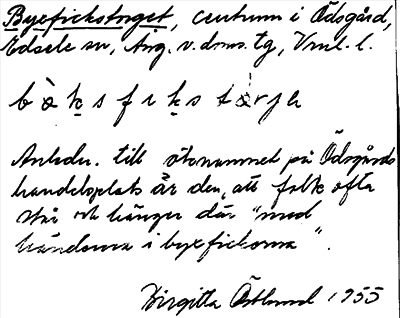 Byxfickstorget, centrum i Ödsgård,
Edsele sn, Ång. v. dms. tg, Vml. l.
b ò̤ k s f ɩ k s t ò r j ə
Anledn. till öknamnet på Ödsgårds
handelsplats är den, att folk ofta
står och hänger där "med
händerna i byxfickorna".
Birgitta Östlund 1955